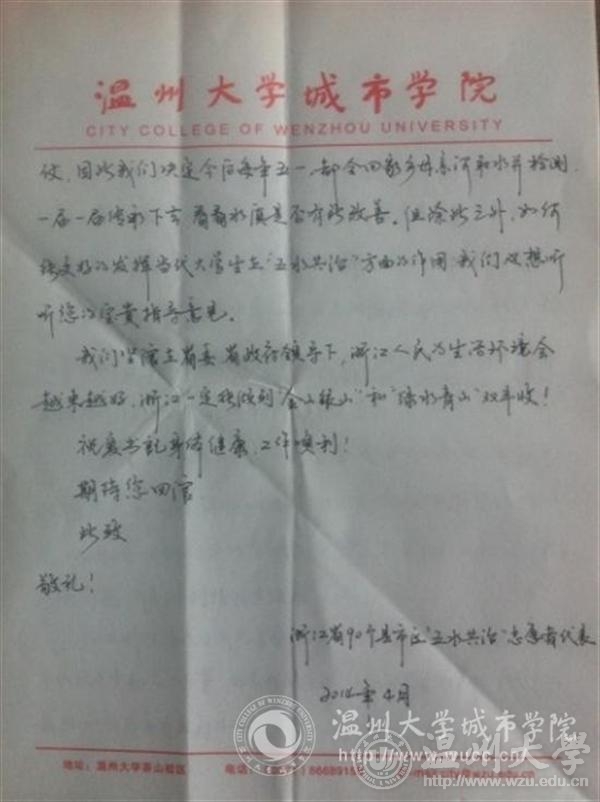 温州大学城市学院
CITY COLLEGE OF WENZHOU UNIVERSITY
仗,因此我们决定今后每年五一,都会回家乡母亲河和水井检测,
一届一届传承下去,看看水质是否有所改善。但除此之外,如何
能更好的发挥当代大学生在"五水共治"方面的作用,我们也想听
听您的宝贵指导意见。
我们坚信在省委省政府领导下,浙江人民的生活环境会
越来越好,浙江一定能收到"金山银山"和"绿水青山"双丰收!
祝夏书记身体健康,工作顺利!
期待您回信
此致
敬礼!
浙江省90个县市区"五水共治"志愿者代表
2014年4月
温州大学城市学院
http://www.wucc.cn/
温州大学
http://www.wzu.edu.cn
地址:温州大学茶山校区
电话: